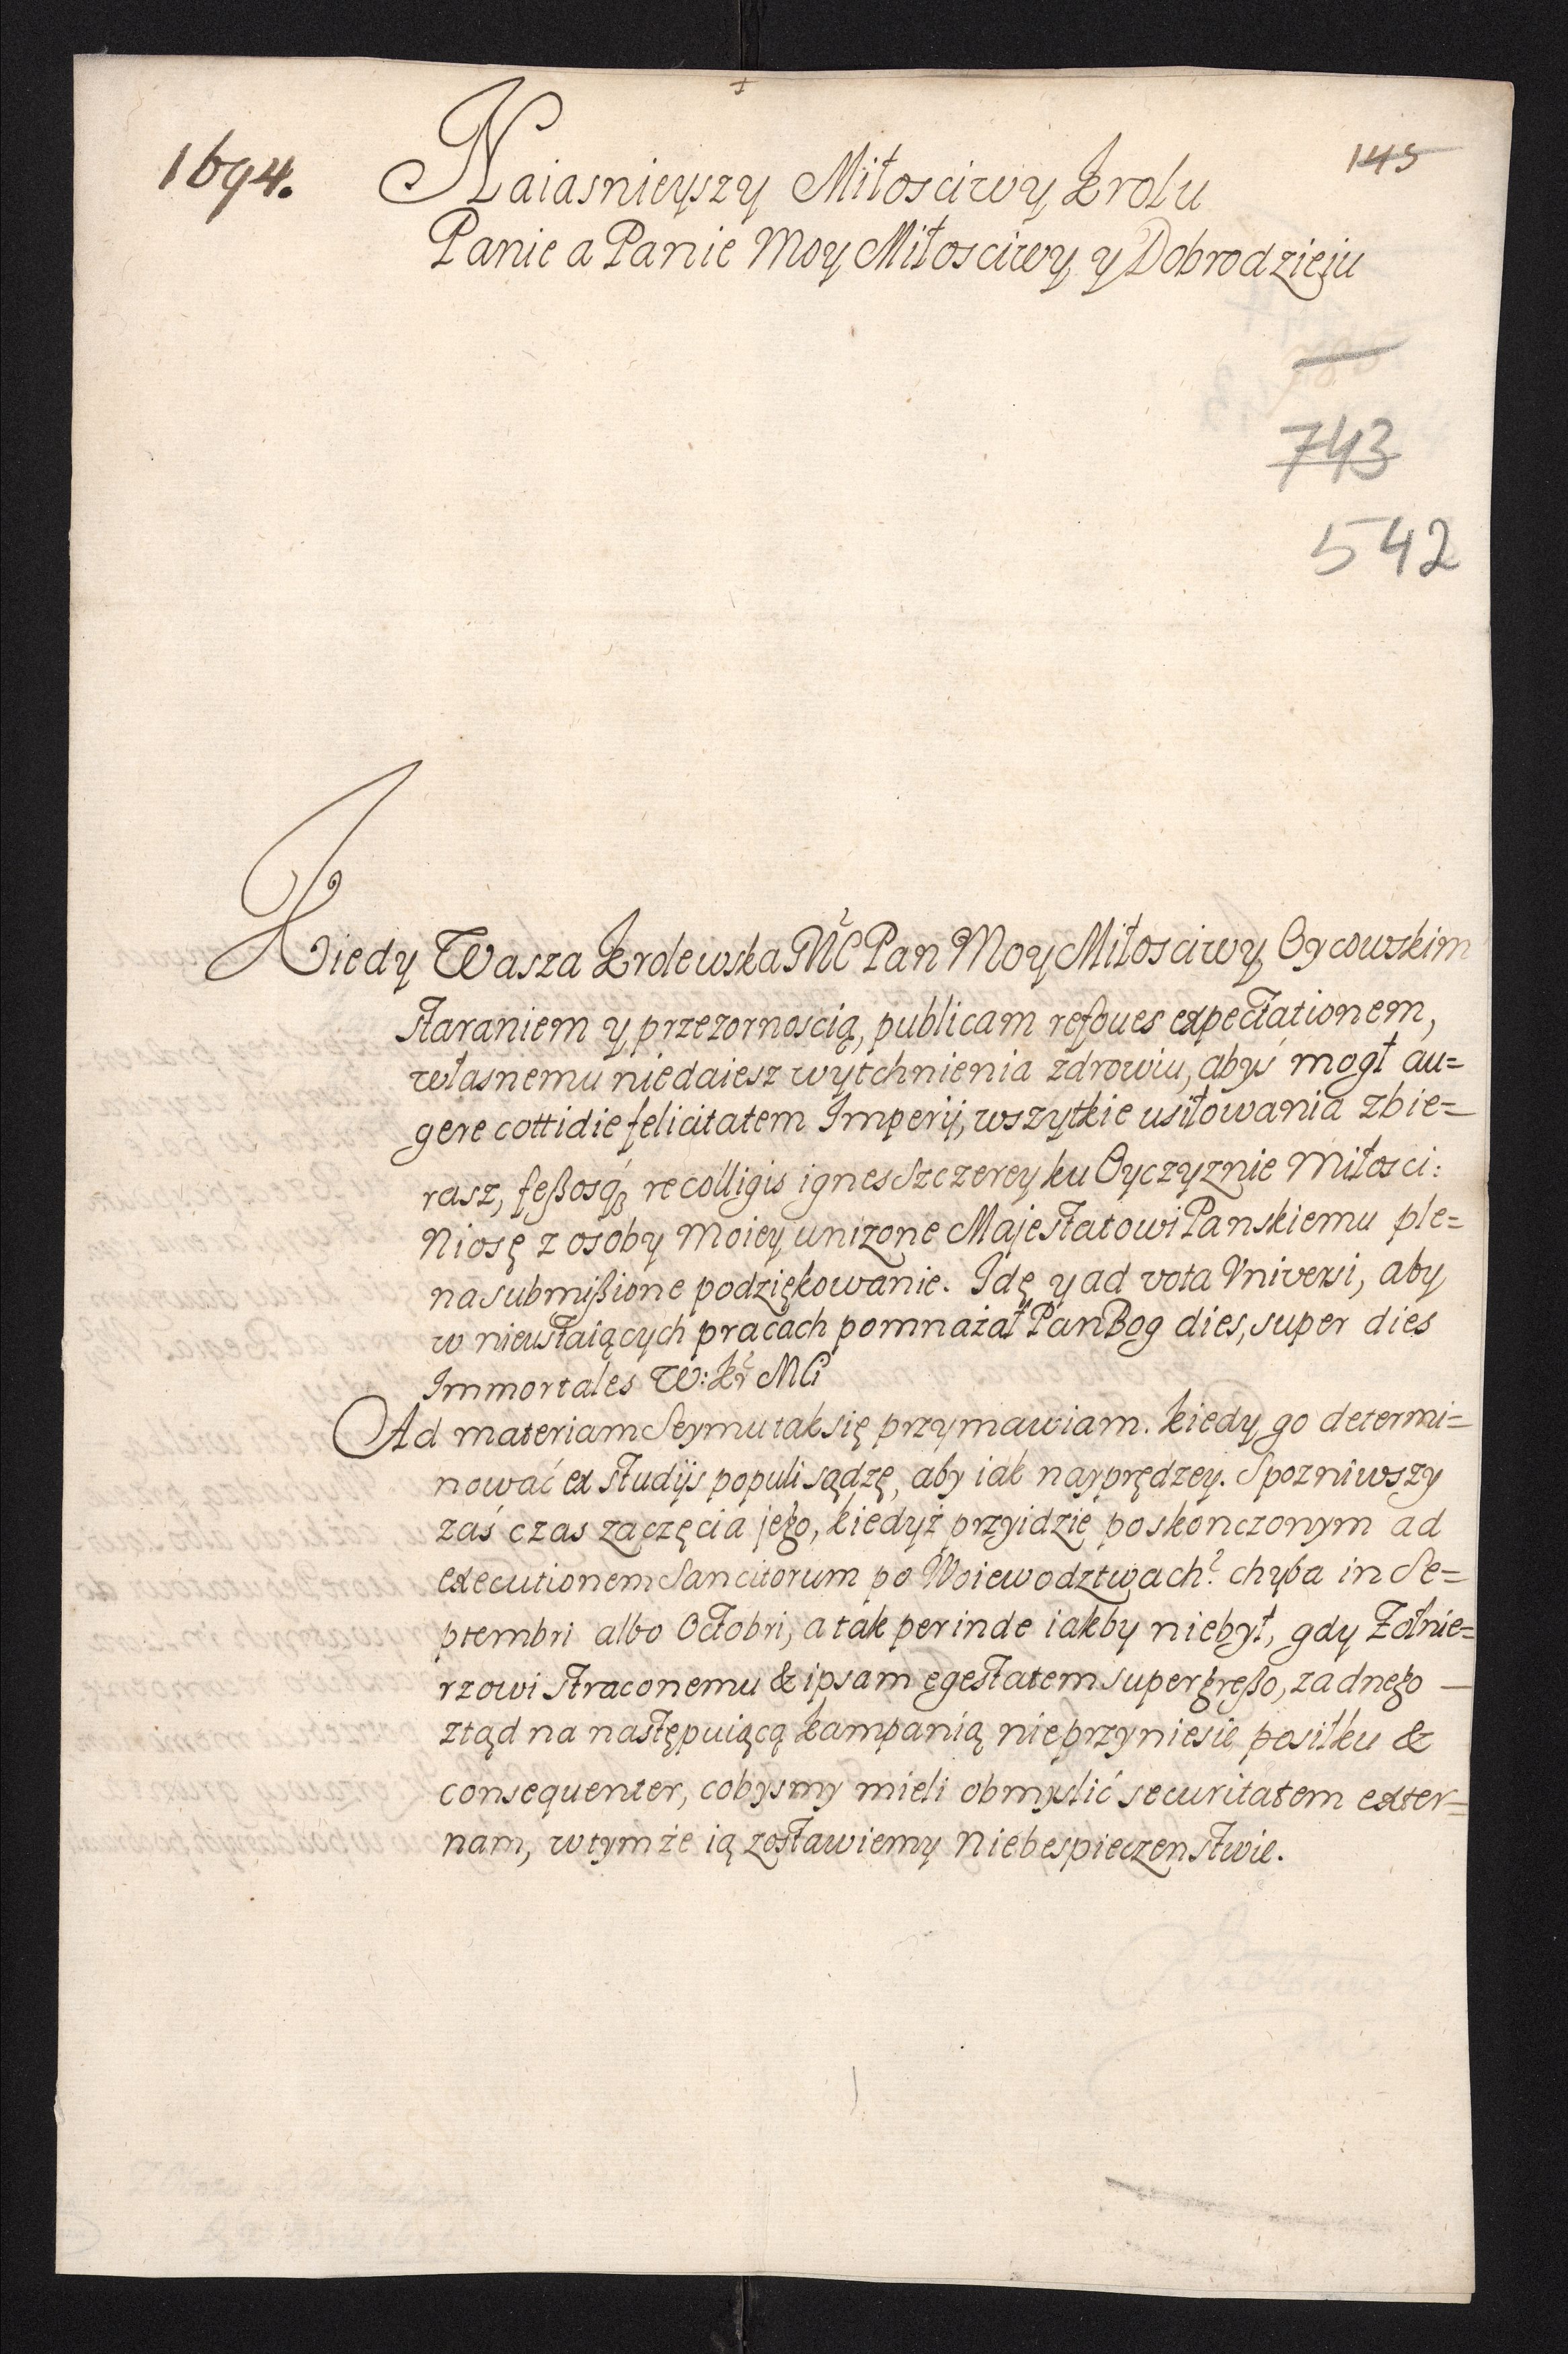 1694.
145
Naiasnieyszy Miłosciwy Krolu
Panie a Panie Moy Miłosciwy y Dobrodzieju
743
542
Kiedy Wasza Krolewska Mć Pan Moy Miłosciwy, Oycowskim
staraniem y przezornoscią, publicam refoues expectationem,
własnemu niedaiesz wytchnienia zdrowiu, abyś mogł au=
gere cottidie felicitatem Imperij, wszytkie usiłowania zbie=
rasz, feßosq́ recolligis ignes Szczerey ku Oyczyznie Miłosci:
Niosę z osoby Moiey unizone Majestatowi Panskiemu ple=
na submißione podziękowanie. Idę y ad vota Vniversi, aby
w nieustaiących pracach pomnażał Pan Bog dies, super dies
Immortales W: Kr Mći
Ad materiam Seymu tak się przymawiam. kiedy go determi=
nować ex studijs populi sądzę, aby iak nayprędzey. Spozniwszy
zaś czas zaczęcia jego, kiedyż przyidzie poskonczonym ad
executionem Sancitorum po Woiewodztwach? chyba in Se=
ptembri albo Octobri, a tak perinde iakby niebył, gdy Zołnie=
rzowi straconemu & ipsam egestatem supergreßo, zadnego —
ztąd na następuiącą kampanią nieprzyniesie posiłku &
consequenter, cobysmy mieli obmyslić securitatem exter=
nam, wtymże ią zostawiemy Niebespieczenstwie.